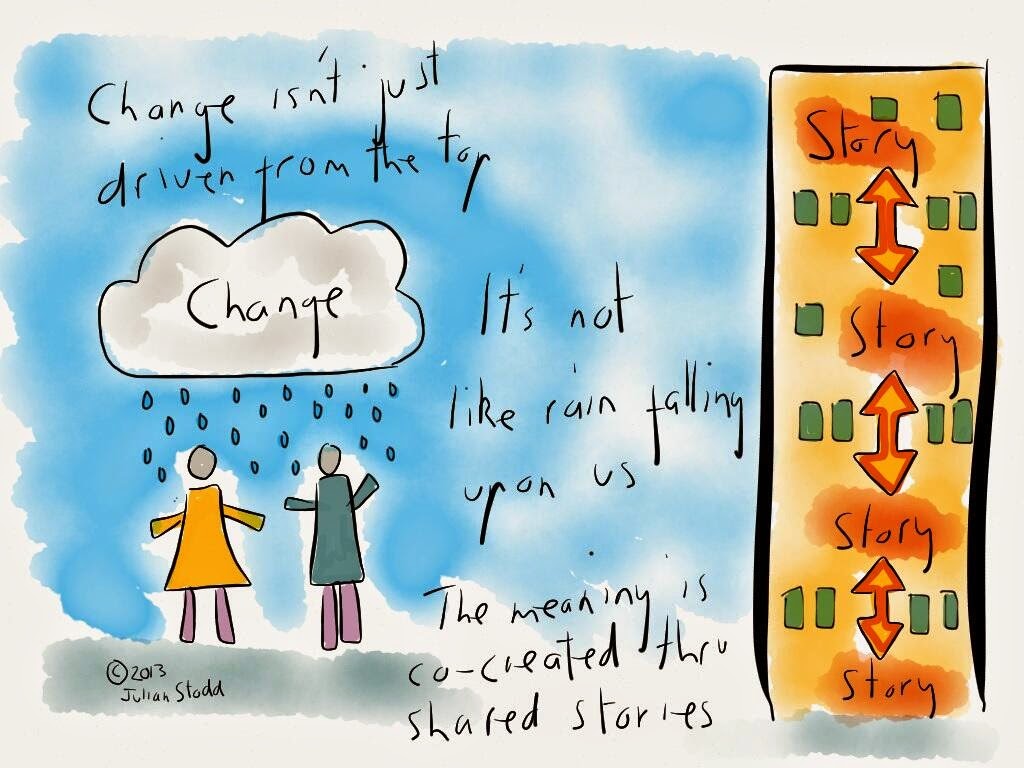 Change isn't just
driven from the top
Change
It's not
like rain falling
upon us
The meaning is
co-created thru
shared stories
© 2013
Julian Stodd
Story
Story
Story
Story